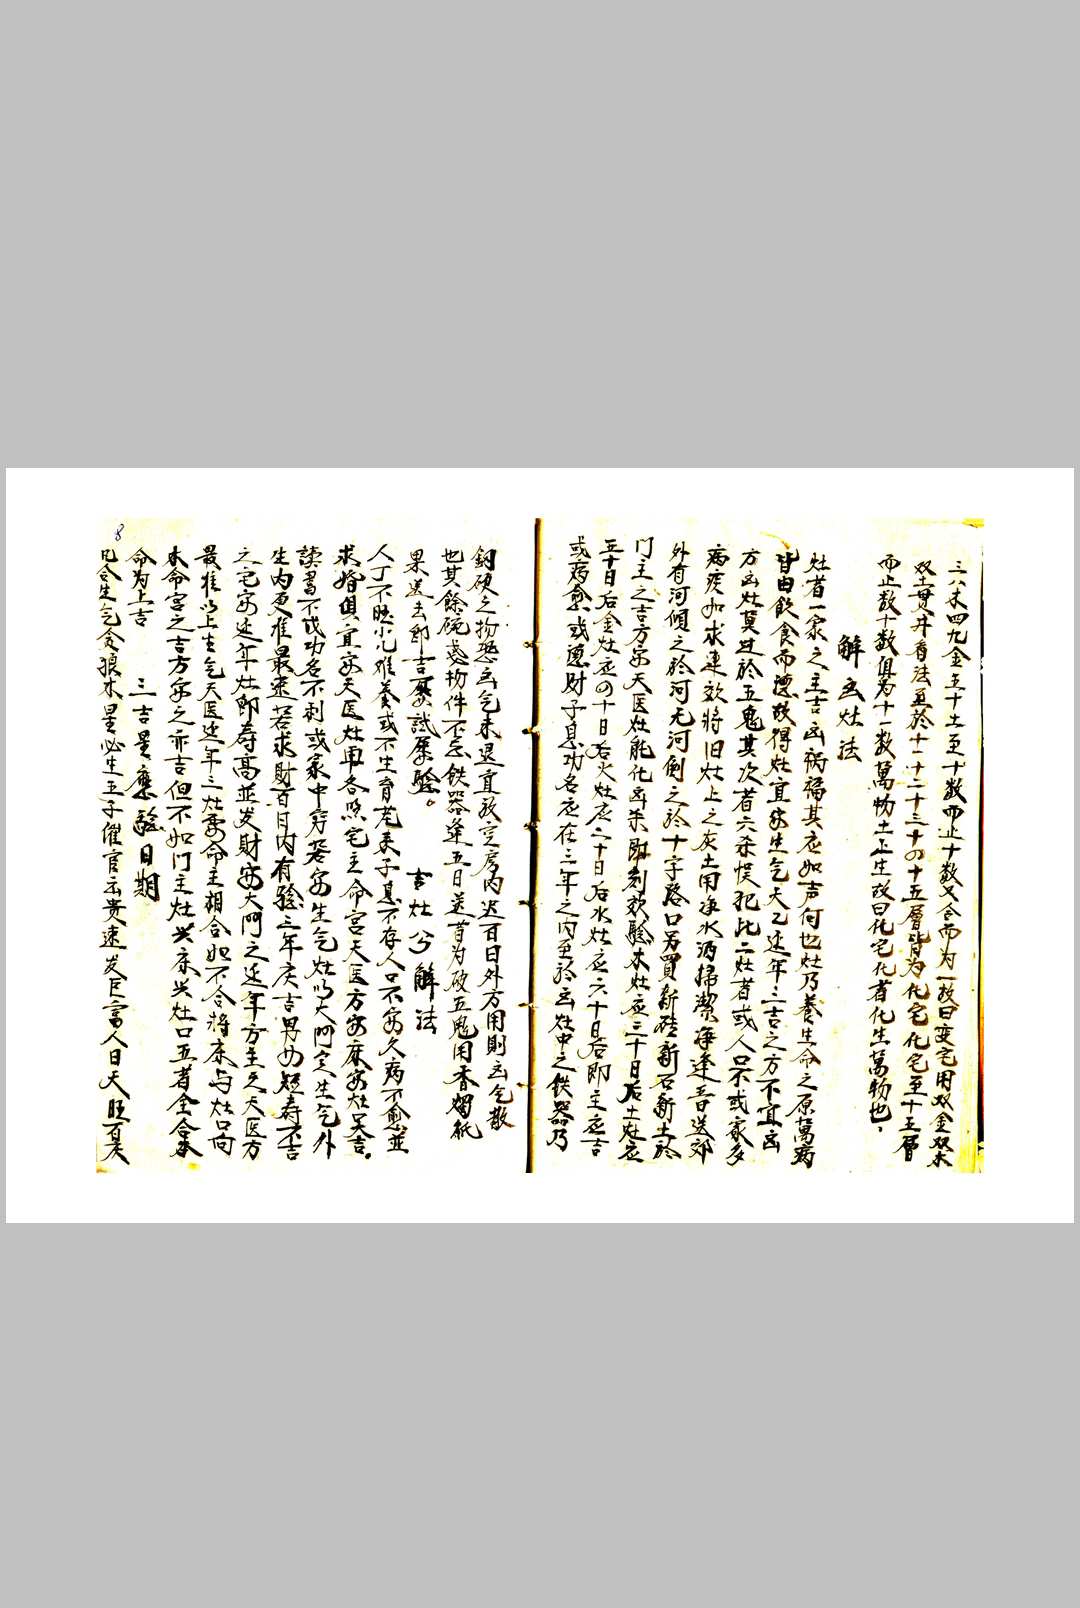 三八木四九金五十土至十数而止十数又合而为一故曰变宅用双金双木
双土贯井看法至於十一十二十三十四十五層皆为化宅化宅至十五層
而止数十数俱为十一数萬物土上生故曰化宅化者化生萬物也
解凶灶法
灶者一家之主吉凶祸福其应如声何也灶乃養生命之原萬病
皆由飲食而得故得灶宜安生气天乙延年三吉之方不宜凶
方凶灶莫过於五鬼其次者六杀悮犯此二灶者或人口不或家多
病疾如求速效將旧灶上之灰土用净水洒掃潔净逢吾日送郊
外有河傾之於河无河倒之於十字路口另買新砖新石新土於
門主之吉方安天医灶能化凶杀即刻效驗木灶应三十日后土灶应
五十日后金灶应四十日后火灶应二十日后水灶应六十日后即主应吉
或病愈或進財子息功名应在三年之内至於凶灶中之鉄器乃
銅硬之物恐凶气未退宜放空房内迟百日外方用則凶气散
也其餘碗盏物件不忌鉄器逢五日送者为破五鬼用香燭紙
果送去即吉屡試屡驗。
吉灶分解法
人丁不旺小儿难養或不生育老来子息不存人口不安久病不愈並
求婚俱宜安天医灶再各照宅主命宮天医方安床安灶口大吉。
讀書不成功名不利或家中穷苦安生气灶以大门定生气外
生内更准最速若求財百日内有驗三年庆吉男女短寿不吉
之宅安延年灶即寿高並发財安大門之延年方主之天医方
最准以上生气天医延年三灶要命主相合如不合將床与灶口向
本命宮之吉方安之亦吉但不如門主灶与床与灶口五者全合本
命为上吉
三吉星應驗日期
凡合生气贪狼木星必生五子催官出贵速发巨富人口大旺百庆
8